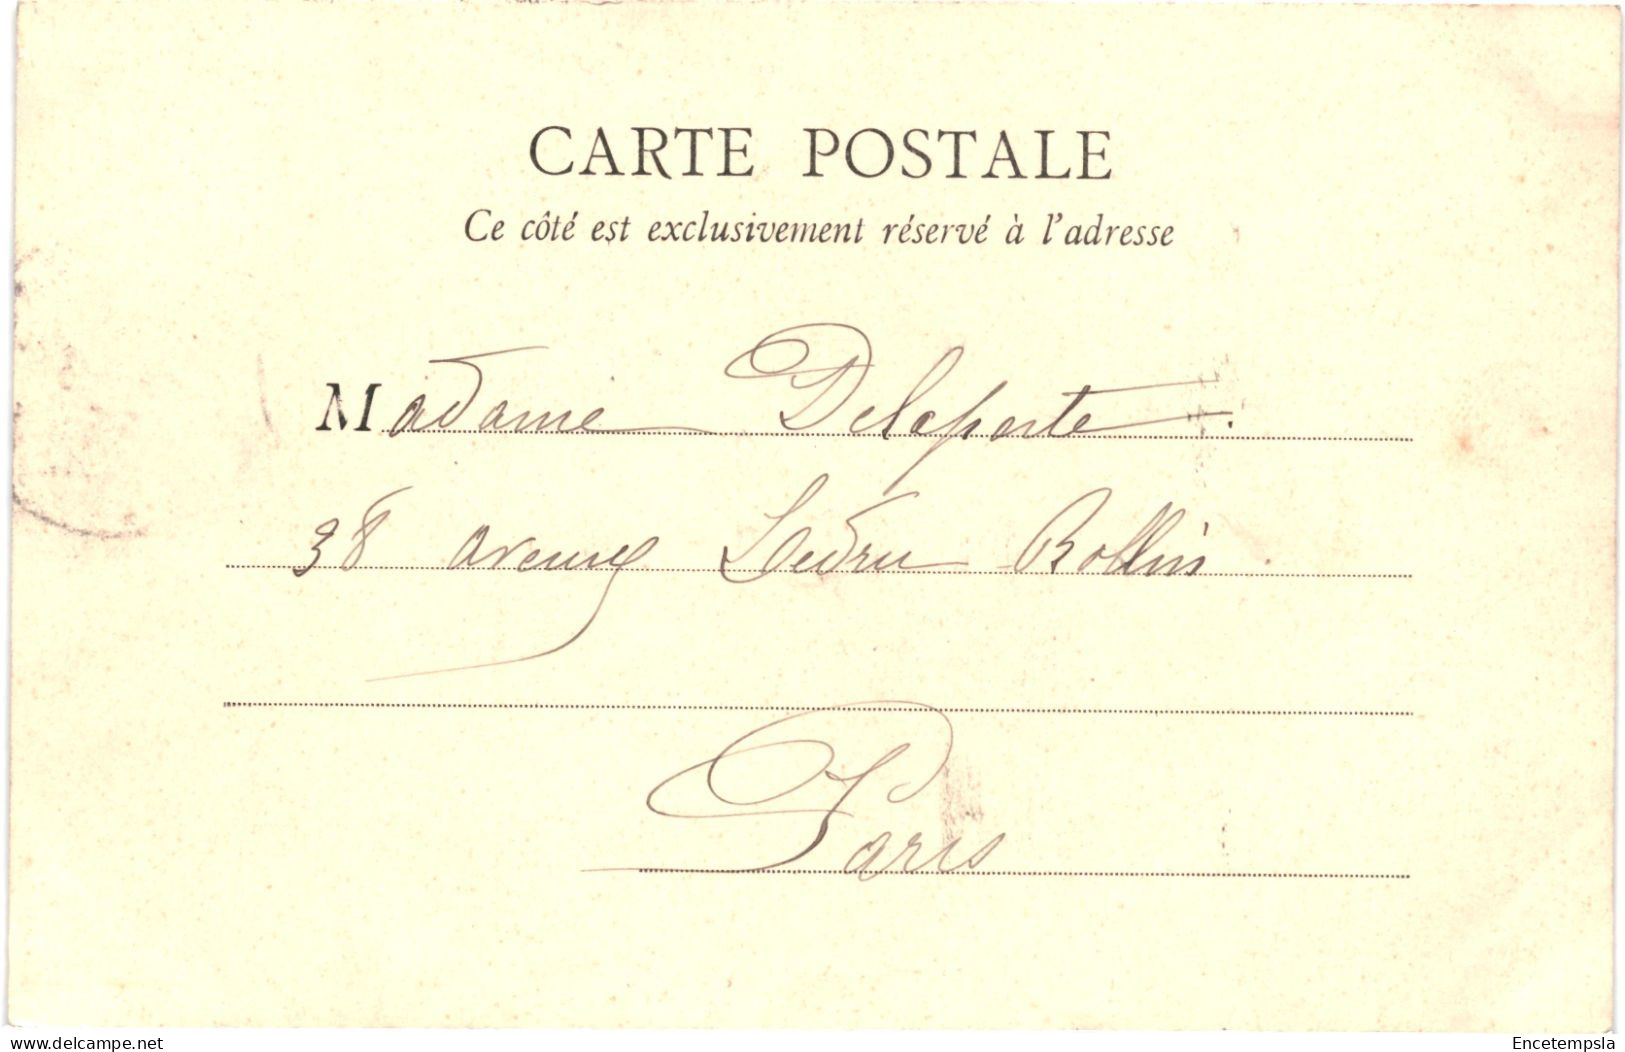 CARTE POSTALE
Ce côté est exclusivement réservé à l'adresse
Madame Delaporte.
38 avenue Ledru Rollin.
Paris
www.delcampe.net
Encetempsla